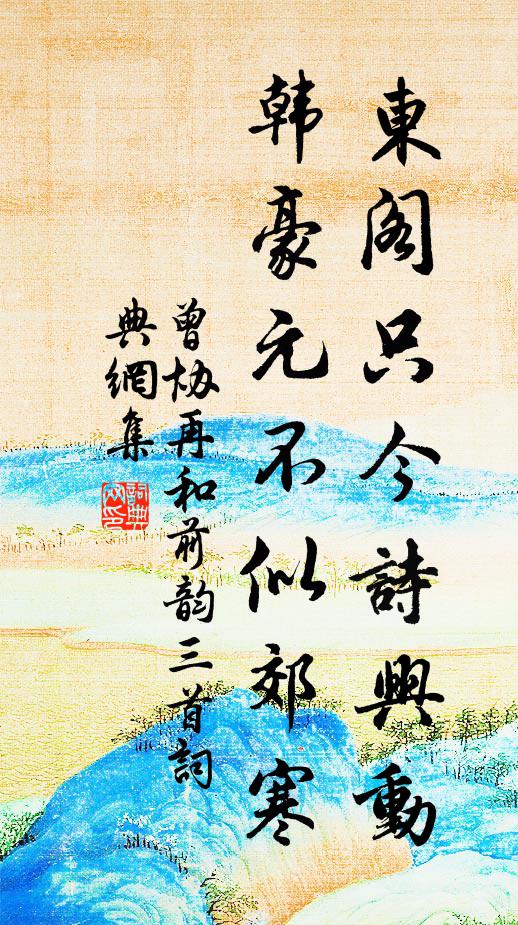 東阁只今詩興動
韩豪元不似郊寒
曾协再和前韵三首詞
典網集
詞典网印